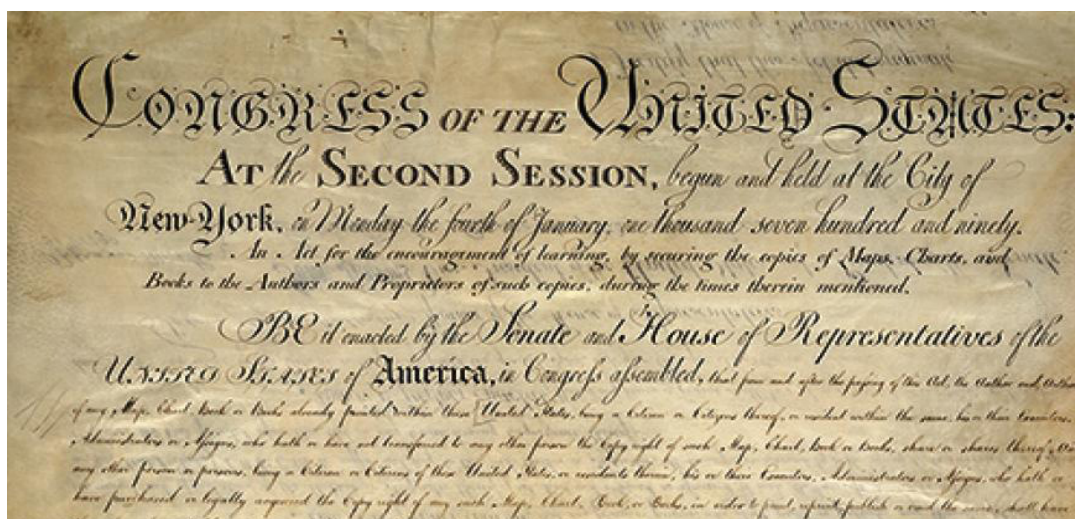 CONGRESS OF THE UNITED STATES:
AT the SECOND SESSION, begun and held at the City of
New-York, on Monday the fourth of January, one thousand seven hundred and ninety.
An Act for the encouragement of learning, by securing the copies of Maps, Charts, and
Books to the Authors and Proprietors of such copies, during the times therein mentioned.
BE it enacted by the Senate and House of Representatives of the
UNITED STATES of America, in Congress assembled, that from and after the passing of this Act, the Author and Authors
of any Map, Chart, Book or Books already printed within these United States, being a Citizen or Citizens thereof, or resident within the same, his or their Executors,
Administrators or Assigns, who hath or have not transferred to any other person the Copy right of such Map, Chart, Book or Books, share or shares thereof,
any other person or persons, being a Citizen or Citizens of these United States, or residents therein, his or their Executors, Administrators or Assigns, who hath or
have purchased or legally acquired the Copy right of any such Map, Chart, Book, or Books, in order to print, reprint, publish or vend the same, shall have